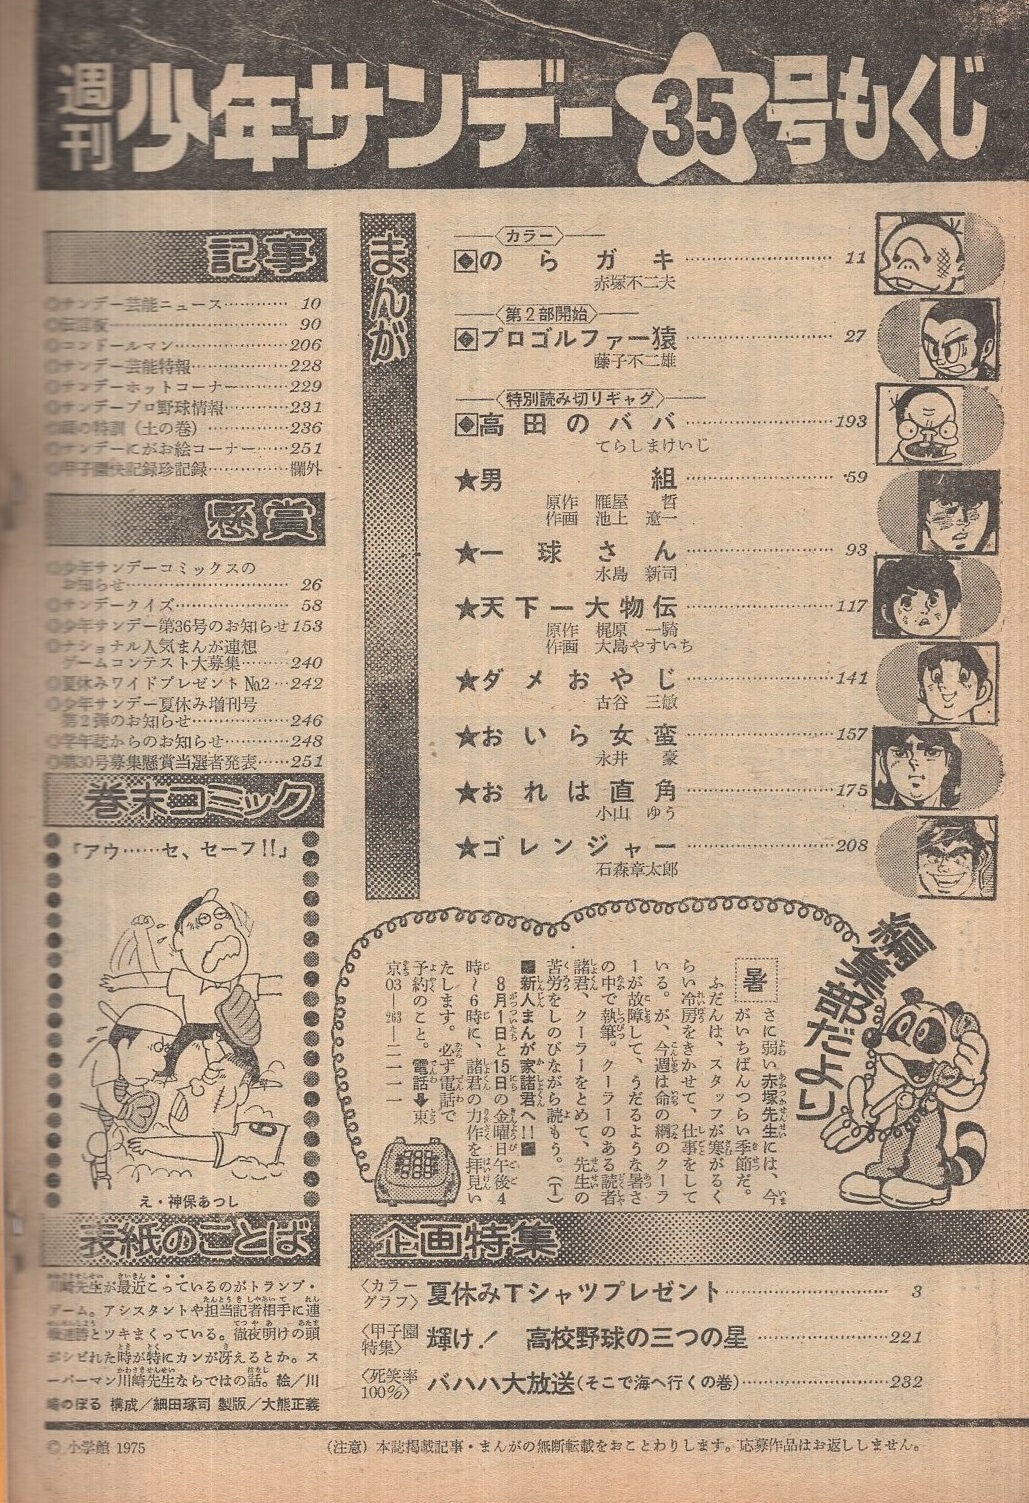 週刊少年サンデー35号もくじ
まんが
〈カラー〉
のらガキ……11
赤塚不二夫
〈第2部開始〉
プロゴルファー猿……27
藤子不二雄
〈特別読み切りギャグ〉
高田のババ……193
てらしまけいじ
★男組……59
原作 雁屋 哲
作画 池上 遼一
★一球さん……93
水島 新司
★天下一大物伝……117
原作 梶原 一騎
作画 大島やすいち
★ダメおやじ……141
古谷 三敏
★おいら女蛮……157
永井 豪
★おれは直角……175
小山 ゆう
★ゴレンジャー……208
石森章太郎
記事
◎サンデー芸能ニュース……10
◎伝言板……90
◎コンドールマン……206
◎サンデー芸能特報……228
◎サンデーホットコーナー……229
◎サンデープロ野球情報……231
の特訓(土の巻)……236
◎サンデーにがお絵コーナー……251
◎甲子園快記録珍記録……欄外
懸賞
◎少年サンデーコミックスの
お知らせ……26
◎サンデークイズ……58
◎少年サンデー第36号のお知らせ153
◎ナショナル人気まんが連想
ゲームコンテスト大募集……240
◎夏休みワイドプレゼント№2…242
◎少年サンデー夏休み増刊号
第2弾のお知らせ……246
◎学年誌からのお知らせ……248
◎第30号募集懸賞当選者発表……251
巻末コミック
「アウ……セ、セーフ!!」
え・神保あつし
表紙のことば
川崎先生が最近こっているのがトランプ・
ゲーム。アシスタントや担当記者相手に連
戦連勝とツキまくっている。徹夜明けの頭
がシビれた時が特にカンが冴えるとか。ス
ーパーマン川崎先生ならではの話。絵/川
崎のぼる 構成/細田琢司 製版/大熊正義
編集部だより
暑さに弱い赤塚先生には、今
がいちばんつらい季節だ。
ふだんは、スタッフが寒がるく
らい冷房をきかせて、仕事をして
いる。が、今週は命の綱のクーラ
ーが故障して、うだるような暑さ
の中で執筆。クーラーのある読者
諸君、クーラーをとめて、先生の
苦労をしのびながら読もう。(T)
■新人まんが家諸君へ!!■
8月1日と15日の金曜日午後4
時〜6時に、諸君の力作を拝見い
たします。必ず電話で
予約のこと。電話➡東
京03―263―二一一一
企画特集
〈カラーグラフ〉夏休みTシャツプレゼント……3
〈甲子園特集〉輝け! 高校野球の三つの星……221
〈死笑率100%〉バハハ大放送(そこで海へ行くの巻)……232
© 小学館 1975
(注意)本誌掲載記事・まんがの無断転載をおことわりします。応募作品はお返ししません。